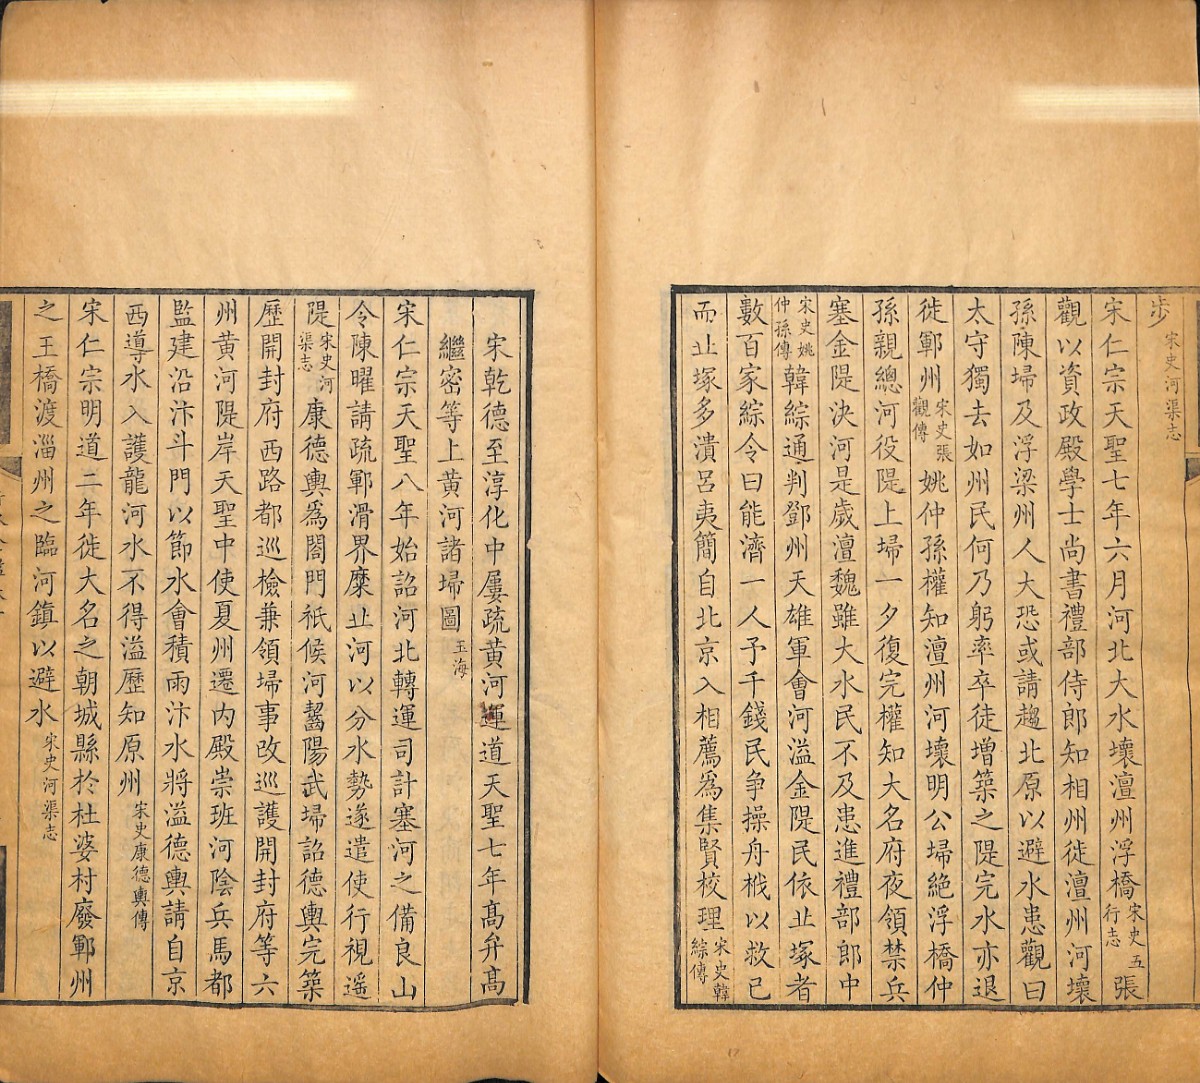 步宋史河渠志
宋仁宗天聖七年六月河北大水壞澶州浮橋宋史五行志張
觀以資政殿學士尚書禮部侍郎知相州徙澶州河壞
孫陳埽及浮梁州人大恐或請趨北原以避水患觀曰
太守獨去如州民何乃躬率卒徒增築之隄完水亦退
徙鄆州宋史張觀傳姚仲孫權知澶州河壞明公埽絶浮橋仲
孫親總河役隄上埽一夕復完權知大名府夜領禁兵
塞金隄決河是歲澶魏雖大水民不及患進禮部郎中
宋史姚仲孫傳韓綜通判鄧州天雄軍會河溢金隄民依丘塚者
數百家綜令曰能濟一人予千錢民爭操舟栰以救已
而丘塚多潰呂夷簡自北京入相薦爲集賢校理宋史韓綜傳
宋乾德至淳化中屢疏黃河運道天聖七年高弁高
繼密等上黃河諸埽圖玉海
宋仁宗天聖八年始詔河北轉運司計塞河之備良山
令陳曜請疏鄆滑界糜丘河以分水勢遂遣使行視遥
隄宋史河渠志康德輿爲閤門祇候河齧陽武埽詔德輿完築
歷開封府西路都巡檢兼領埽事改巡護開封府等六
州黃河隄岸天聖中使夏州遷内殿崇班河陰兵馬都
監建沿汴斗門以節水會積雨汴水將溢德輿請自京
西導水入護龍河水不得溢歷知原州宋史康德輿傳
宋仁宗明道二年徙大名之朝城縣於杜婆村廢鄆州
之王橋渡淄州之臨河鎮以避水宋史河渠志